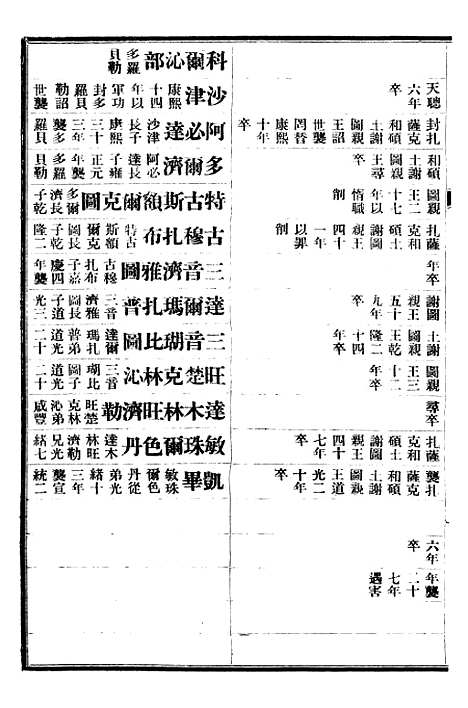 天聰六年卒
封扎薩克和碩土謝圖親王詔世襲罔替康熙十年卒
和碩土謝圖親王尋卒
圖親王二十七年以惰職削
扎薩克和碩土謝圖親王四十一年以罪削
年卒
謝圖親王五十九年卒
土謝圖親王乾隆二十四年卒
圖親王三十二年卒
尋卒
扎薩克和碩土謝圖親王四十七年卒
襲扎薩克和碩土謝圖親王道光二十年卒
六年卒
年襲二十七年遇害
科爾沁部多羅貝勒
沙津康熙十四年以軍功封多羅貝勒詔世襲
阿必達沙津長子康熙三十三年襲多羅貝
多爾濟阿必達長子雍正元年襲多羅貝勒
特古斯額爾克圖多爾濟長子乾
古穆扎布特古斯額爾克圖長子乾隆二
三音濟雅圖古穆扎布子嘉慶四年襲
達爾瑪扎普三音濟雅圖長子道光三
三音瑚比圖達爾瑪扎普弟道光二十
旺楚克林沁三音瑚比圖子道光二十
達木林旺濟勒旺楚克林沁弟咸豐
敏珠爾色丹達木林旺濟勒兄光緒七
凱畢敏珠爾色丹從弟光緒十三年襲宣統二